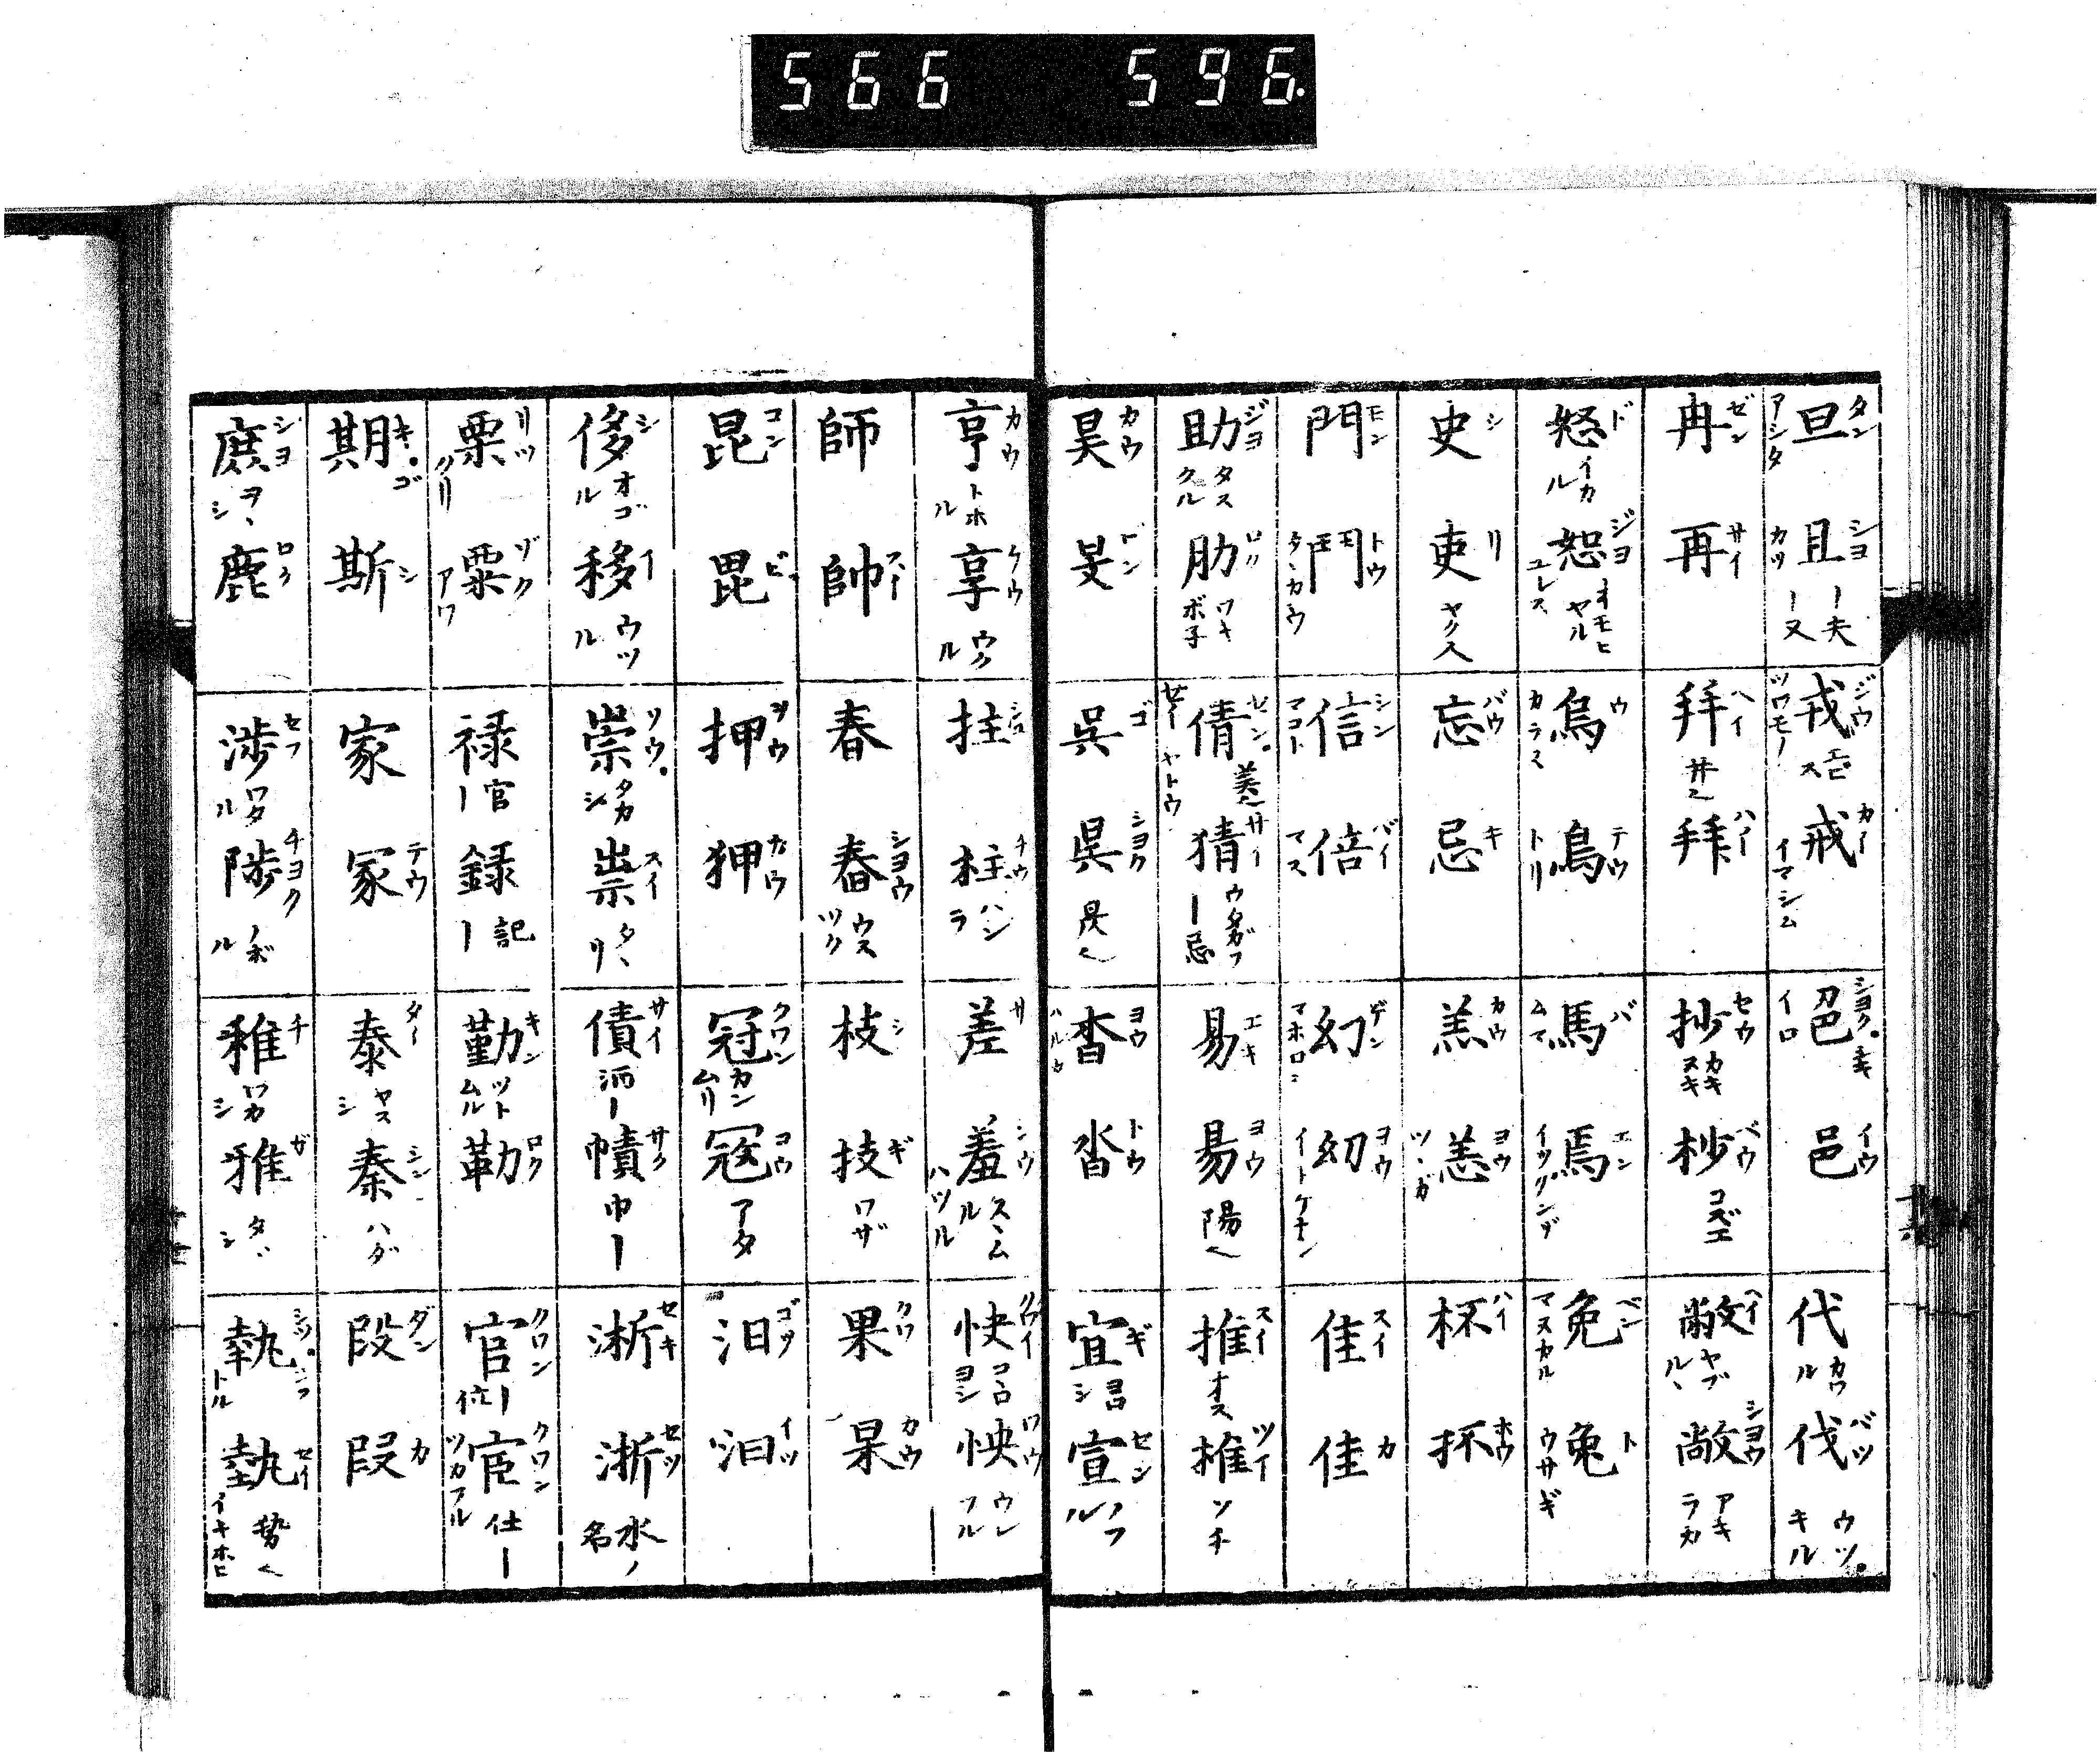 566 596.
旦 タン アシタ 且 シヨ カツ ー夫 ー又 戎 ジウ ツワモノ エビス 戒 カイ イマシム 色 シヨク・シキ イロ 邑 イウ 代 カワル 伐 バツ ウツ・キル
冉 ゼン 再 サイ 拝 ヘイ 拜 ハイ 抄 セウ カキ スキ 杪 バウ コズエ 敝 ヘイ ヤブルヽ 敞 シヨウ アキラカ
怒 ド イカル 恕 ジヨ オモヒヤル ユレス 烏 ウ カラス 鳥 テウ トリ 馬 バ ムマ 焉 エン イヅクンゾ 免 ベン マヌカル 兔 ト ウサギ
史 シ 吏 リ ヤク人 忘 バウ 忌 キ 羔 カウ 恙 ヨウ ツヽガ 杯 ハイ 抔 ホウ
門 モン 鬥 トウ タヽカウ 信 シン マコト 倍 バイ マス 幻 ゲン マホロシ 幼 ヨウ イトケナシ 隹 スイ 佳 カ
助 ジヨ タスクル 肋 ロク ワキボ子 倩 セン・セイ ヤトウ 美〆 猜 サイ ウタガフ ー忌 易 エキ 昜 ヨウ 陽〆 推 スイ オス 椎 ツイ ツチ
昊 カウ 旻 ビン 呉 ゴ 吳 シヨク 杳 ヨウ ハルカ 沓 トウ 宜 ギ ヨロシ 宣 セン ノフル
亨 カウ トホル 享 ケウ ウクル 拄 柱 チウ ハシラ 差 サ 羞 シウ スヽムル ハヅル 快 クワイ コヽロヨシ 怏 ワウ ウレフル
師 帥 スイ 春 舂 シヨウ ウスツク 枝 シ 技 ギ ワザ 果 クワ 杲 カウ
昆 コン 毘 ビ 押 ヲウ 狎 カウ 冠 クワン カンムリ 寇 コウ アタ 汨 コツ 汩 イツ
侈 シ オゴル 移 イ ウツル 崇 ソウ・タカシ 祟 スイ タヽリ 債 サイ 幘 サク 巾ー 淅 セキ 浙 セツ 水ノ名
栗 リツ クリ 粟 ゾク アワ 禄 官ー 録 記ー 勤 キン ツトムル 勒 ロク 官 クワン 位ー 宦 クワン 仕ー ツカフル
期 キ・ゴ 斯 シ 家 冢 テウ 泰 タイ ヤスシ 秦 シン ハダ 段 ダン 叚 カ
庶 シヨ ヲヽシ 鹿 ロク 渉 セフ ワタル 陟 チヨク ノボル 稚 チ ワカシ 雅 ガ タヾシ 執 シツ・シフ トル 埶 セイ 勢〆 イキホヒ